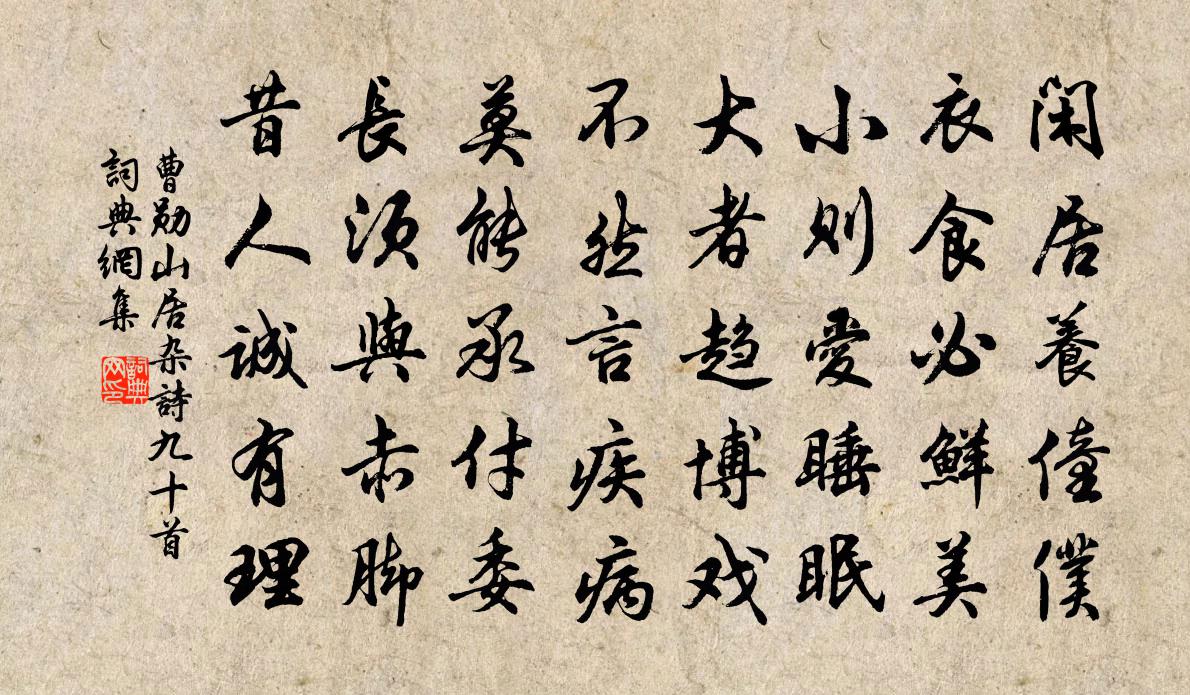 閑居養僮僕
衣食必鮮美
小则愛睡眠
大者趋博戏
不然言疾病
莫能承付委
長须與赤脚
昔人誠有理
曹勋山居杂詩九十首
詞典網集
詞典网印